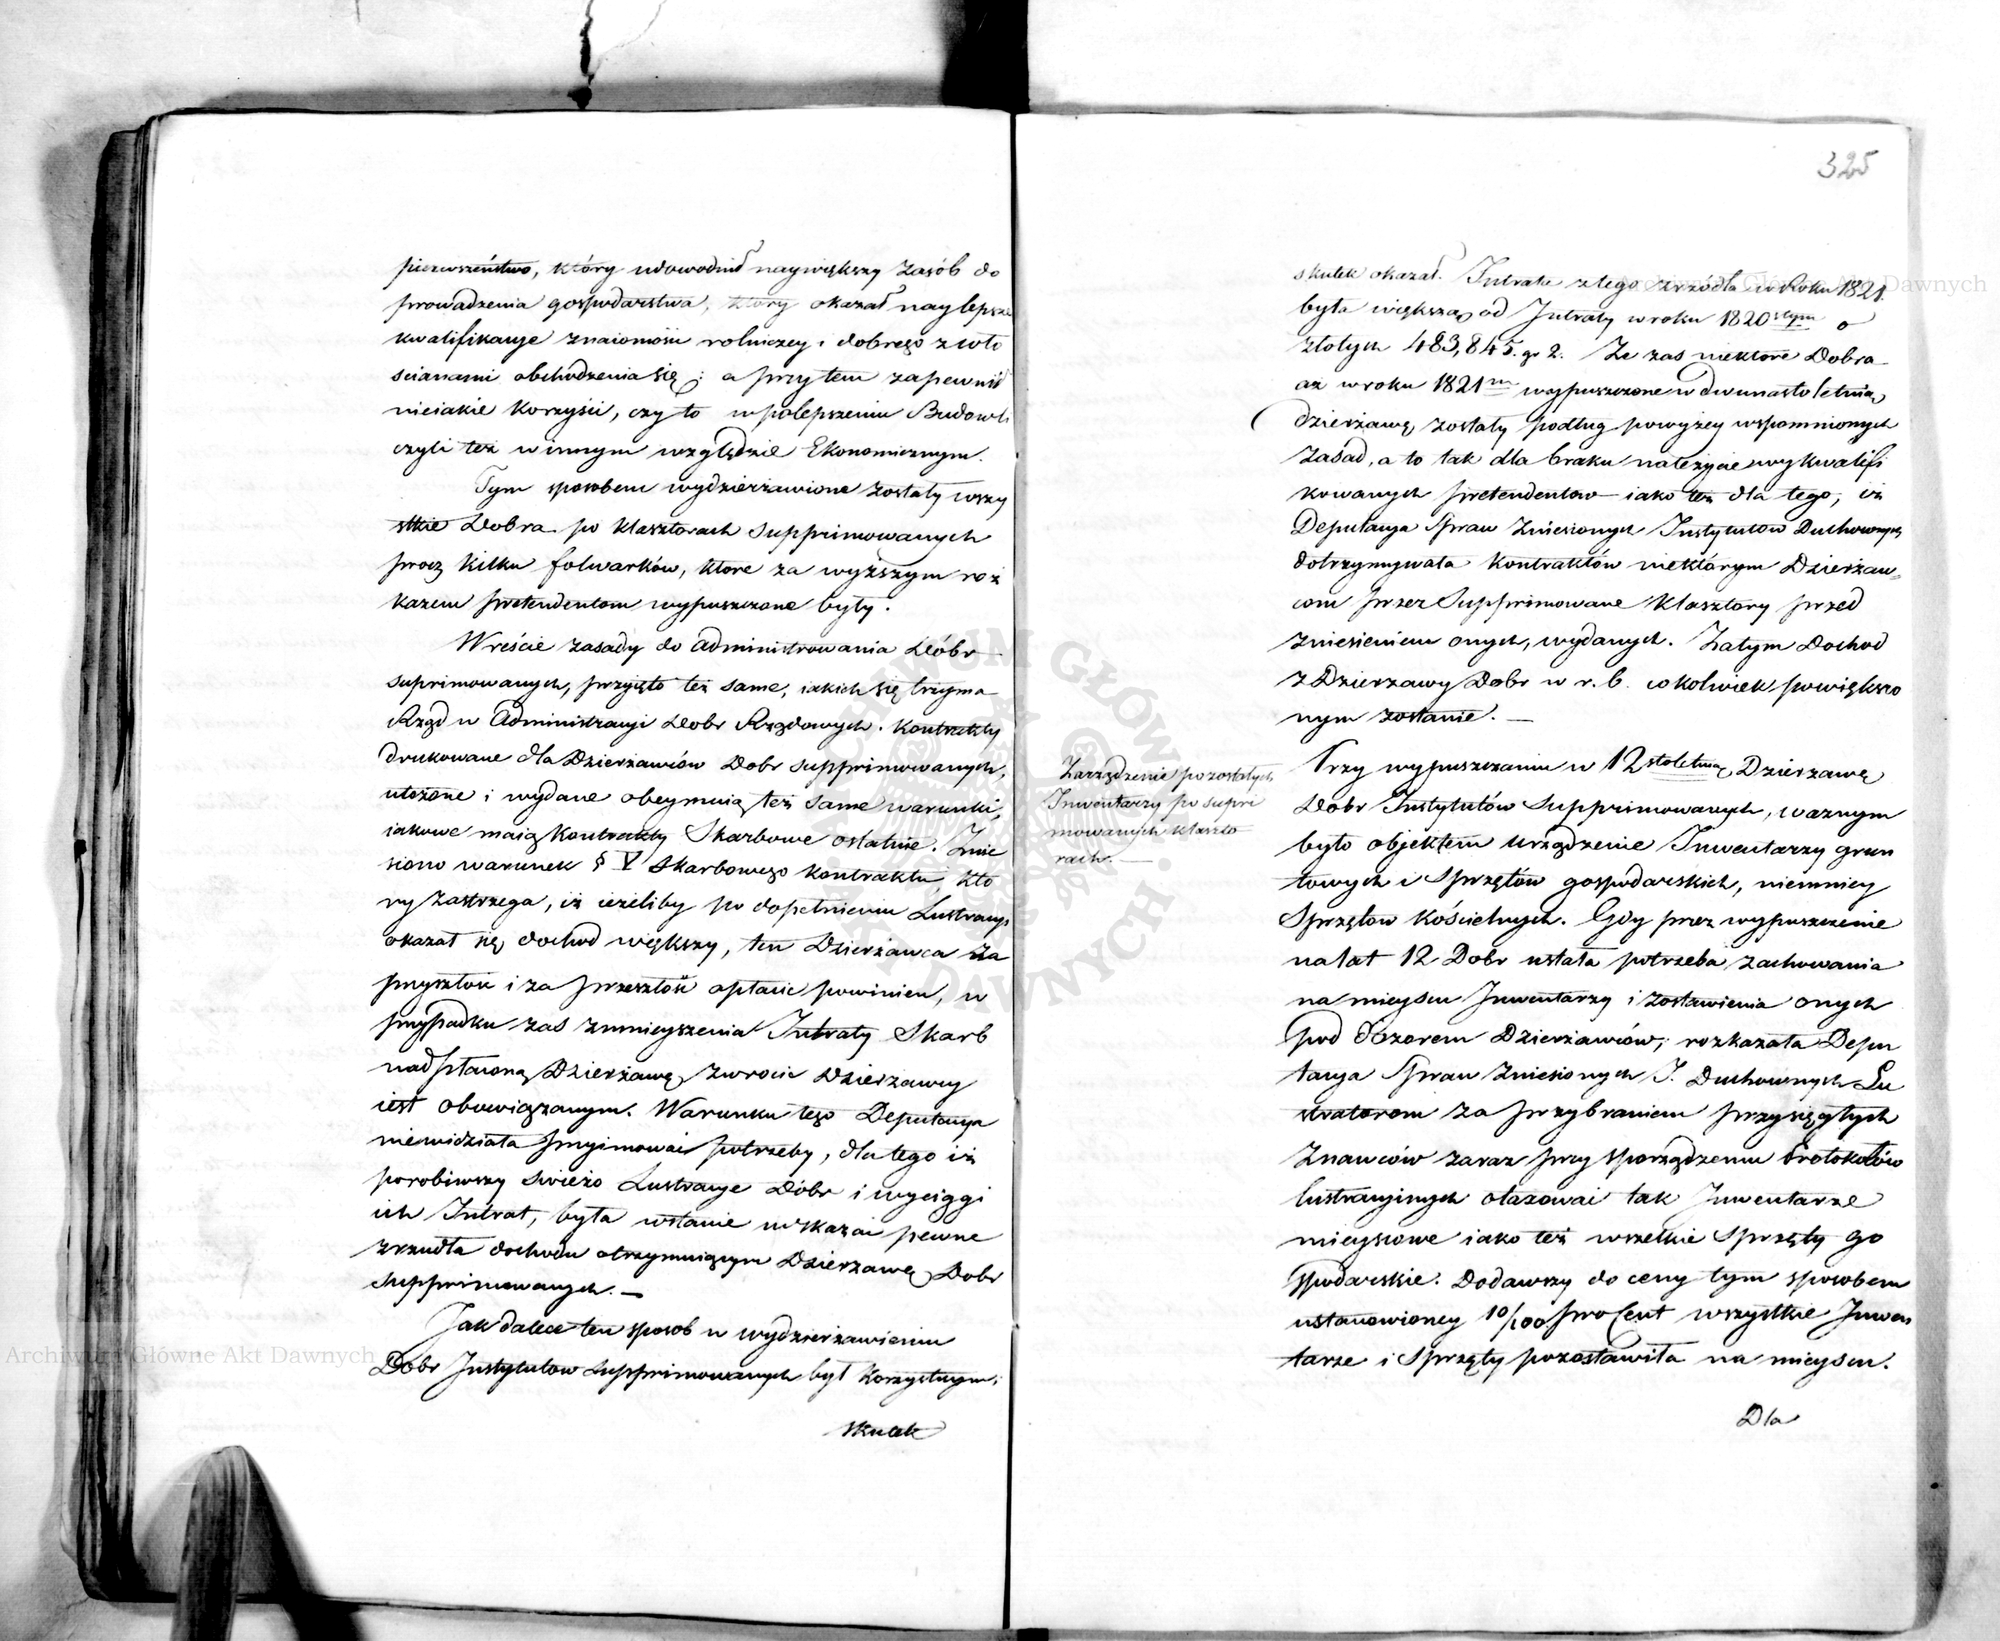 pierwszeństwo, który udowodnił naywiększy zasób do
prowadzenia gospodarstwa, który okazał naylepsze
kwalifikacye znaiomości rolniczey i dobrego z wło
scianami obchodzenia się; a przytem zapewnił
nieiakie korzyści, czy to w polepszeniu Budowli
czyli też w innym względzie Ekonomicznym.
Tym sposobem wydzierżawione zostały wszy
stkie Dobra po klasztorach supprimowanych
procz kilku folwarków, ktore za wyższym roz
kazem pretendentom wypuszczone były.
Wreście zasady do administrowania Dóbr
suprimowanych, przyięto też same, iakich się trzyma
Rząd w Administracyi Dobr Rządowych. Kontrakty
drukowane dla Dzierżawców Dobr supprimowanych,
ułożone i wydane obeymuią też same warunki,
iakowe maią Kontrakty Skarbowe ostatnie. Znie
siono warunek § V Skarbowego kontraktu, kto
ry zastrzega, iż ieżeliby po dopełnieniu Lustracyi
okazał się dochod większy, ten Dzierżawca za
przyszłość i za przeszłość opłacić powinien, w
przypadku zas zmnieyszenia Intraty Skarb
nadpłaconą Dzierżawę zwrocic Dzierzawcy
iest obowiązanym. Warunku tego Deputacya
niewidziała przyimować potrzeby, dla tego iż
porobiwszy swieżo Lustracye Dóbr i wyciągi
ich Intrat, była wstanie wskazać pewne
zrzudła dochodu otrzymuiącym Dzierzawę Dobr
supprimowanych.—
Jak dalece ten sposob w wydzierżawieniu
Dobr Instytutow supprimowanych był korzystnym;
skutek
325
skutek okazał. Intrata z tego zrzódła w Roku 1821.
była większą od Intraty w roku 1820stym o
złotych 483,845. gr 2. Ze zas niektore Dobra
aż w roku 1821m wypuszczone w dwunasto letnią
dzierżawę zostały podług powyżey wspomnionych
zasad, a to tak dla braku należycie wykwalifi
kowanych pretendentow iako też dla tego, iż
Deputacya Spraw Zniesionych Instytutow Duchownych
dotrzymywała kontraktów niektórym Dzierżaw=
com przez Supprimowane Klasztory przed
zniesieniem onych, wydanych. Zatym Dochod
z Dzierzawy Dobr w r. b. cokolwiek powiększo
nym zostanie.—
Zarządzenie pozostałych
Inwentarzy po supri
mowanych klaszto
rach.—
Przy wypuszczaniu w 12stoletnią Dzierzawę
Dobr Instytutów Supprimowanych, waznym
było objektem urządzenie Inwentarzy grun
towych i Sprzętow gospodarskich, niemniey
Sprzętow Kościelnych. Gdy przez wypuszczenie
na lat 12 Dobr ustała potrzeba zachowania
na mieyscu Inwentarzy i zostawienia onych
pod dozorem Dzierżawców; rozkazała Depu
tacya Spraw Zniesionych I. Duchownych Lu
stratorom za przybraniem przysięgłych
Znawców zaraz przy sporządzeniu Protokołów
lustracyinych otaxować tak Inwentarze
mieyscowe iako też wszelkie Sprzęty go
spodarskie. Dodawszy do ceny tym sposobem
ustanowioney 10/100 pro Cent wszystkie Inwen
tarze i Sprzęty pozostawiła na mieyscu.
Dla
Archiwum Główne Akt Dawnych
Archiwum Główne Akt Dawnych
ARCHIWUM GŁÓWNE AKT DAWNYCH